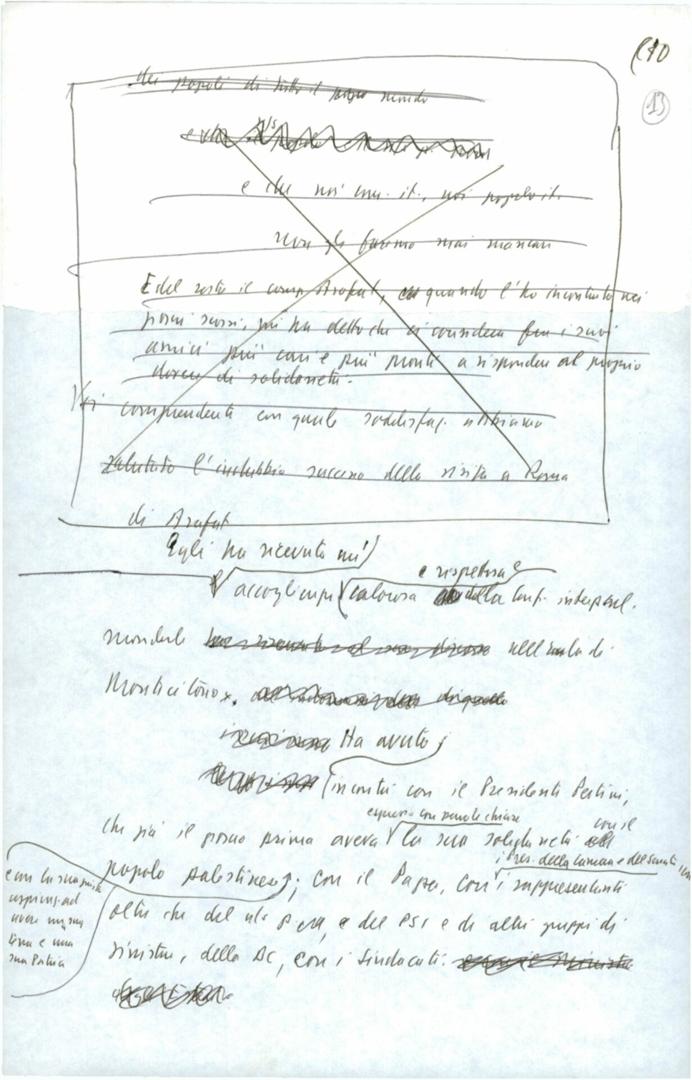 (10
13
dei popoli di tutto il mondo
e che noi com. it., noi popolo it.
non gli faremo mai mancare
E del resto il comp. Arafat, quando l'ho incontrato nei
giorni scorsi, mi ha detto che ci considera fra i suoi
amici più cari e più pronti a rispondere al proprio
dovere di solidarietà.
Voi comprendete con quale soddisfaz. abbiamo
salutato l'indubbio successo della visita a Roma
di Arafat
Egli ha ricevuto un'
e rispettosa
accoglienza calorosa della Conf. interparl.
mondiale nell'aula di
Montecitorio.
Ha avuto
incontri con il Presidente Pertini,
espresso con parole chiare
che già il giorno prima aveva la sua solidarietà con il
i Pres. della Camera e del Senato
popolo palestinese; con il Papa, con i rappresentanti
e con la sua giusta
ad
avere una
terra e una
sua Patria
oltre che del n/s P. e del PSI e di altri gruppi di
sinistra, della DC, con i Sindacati.